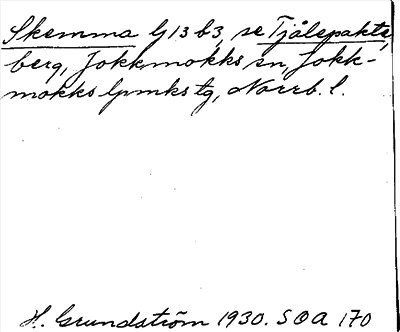 Skemma G 13 b 3, se Tjålepakte,
berg, Jokkmokks sn, Jokk-
mokks lpmks tg, Norrb. l.
H. Grundström 1930. SOA 170